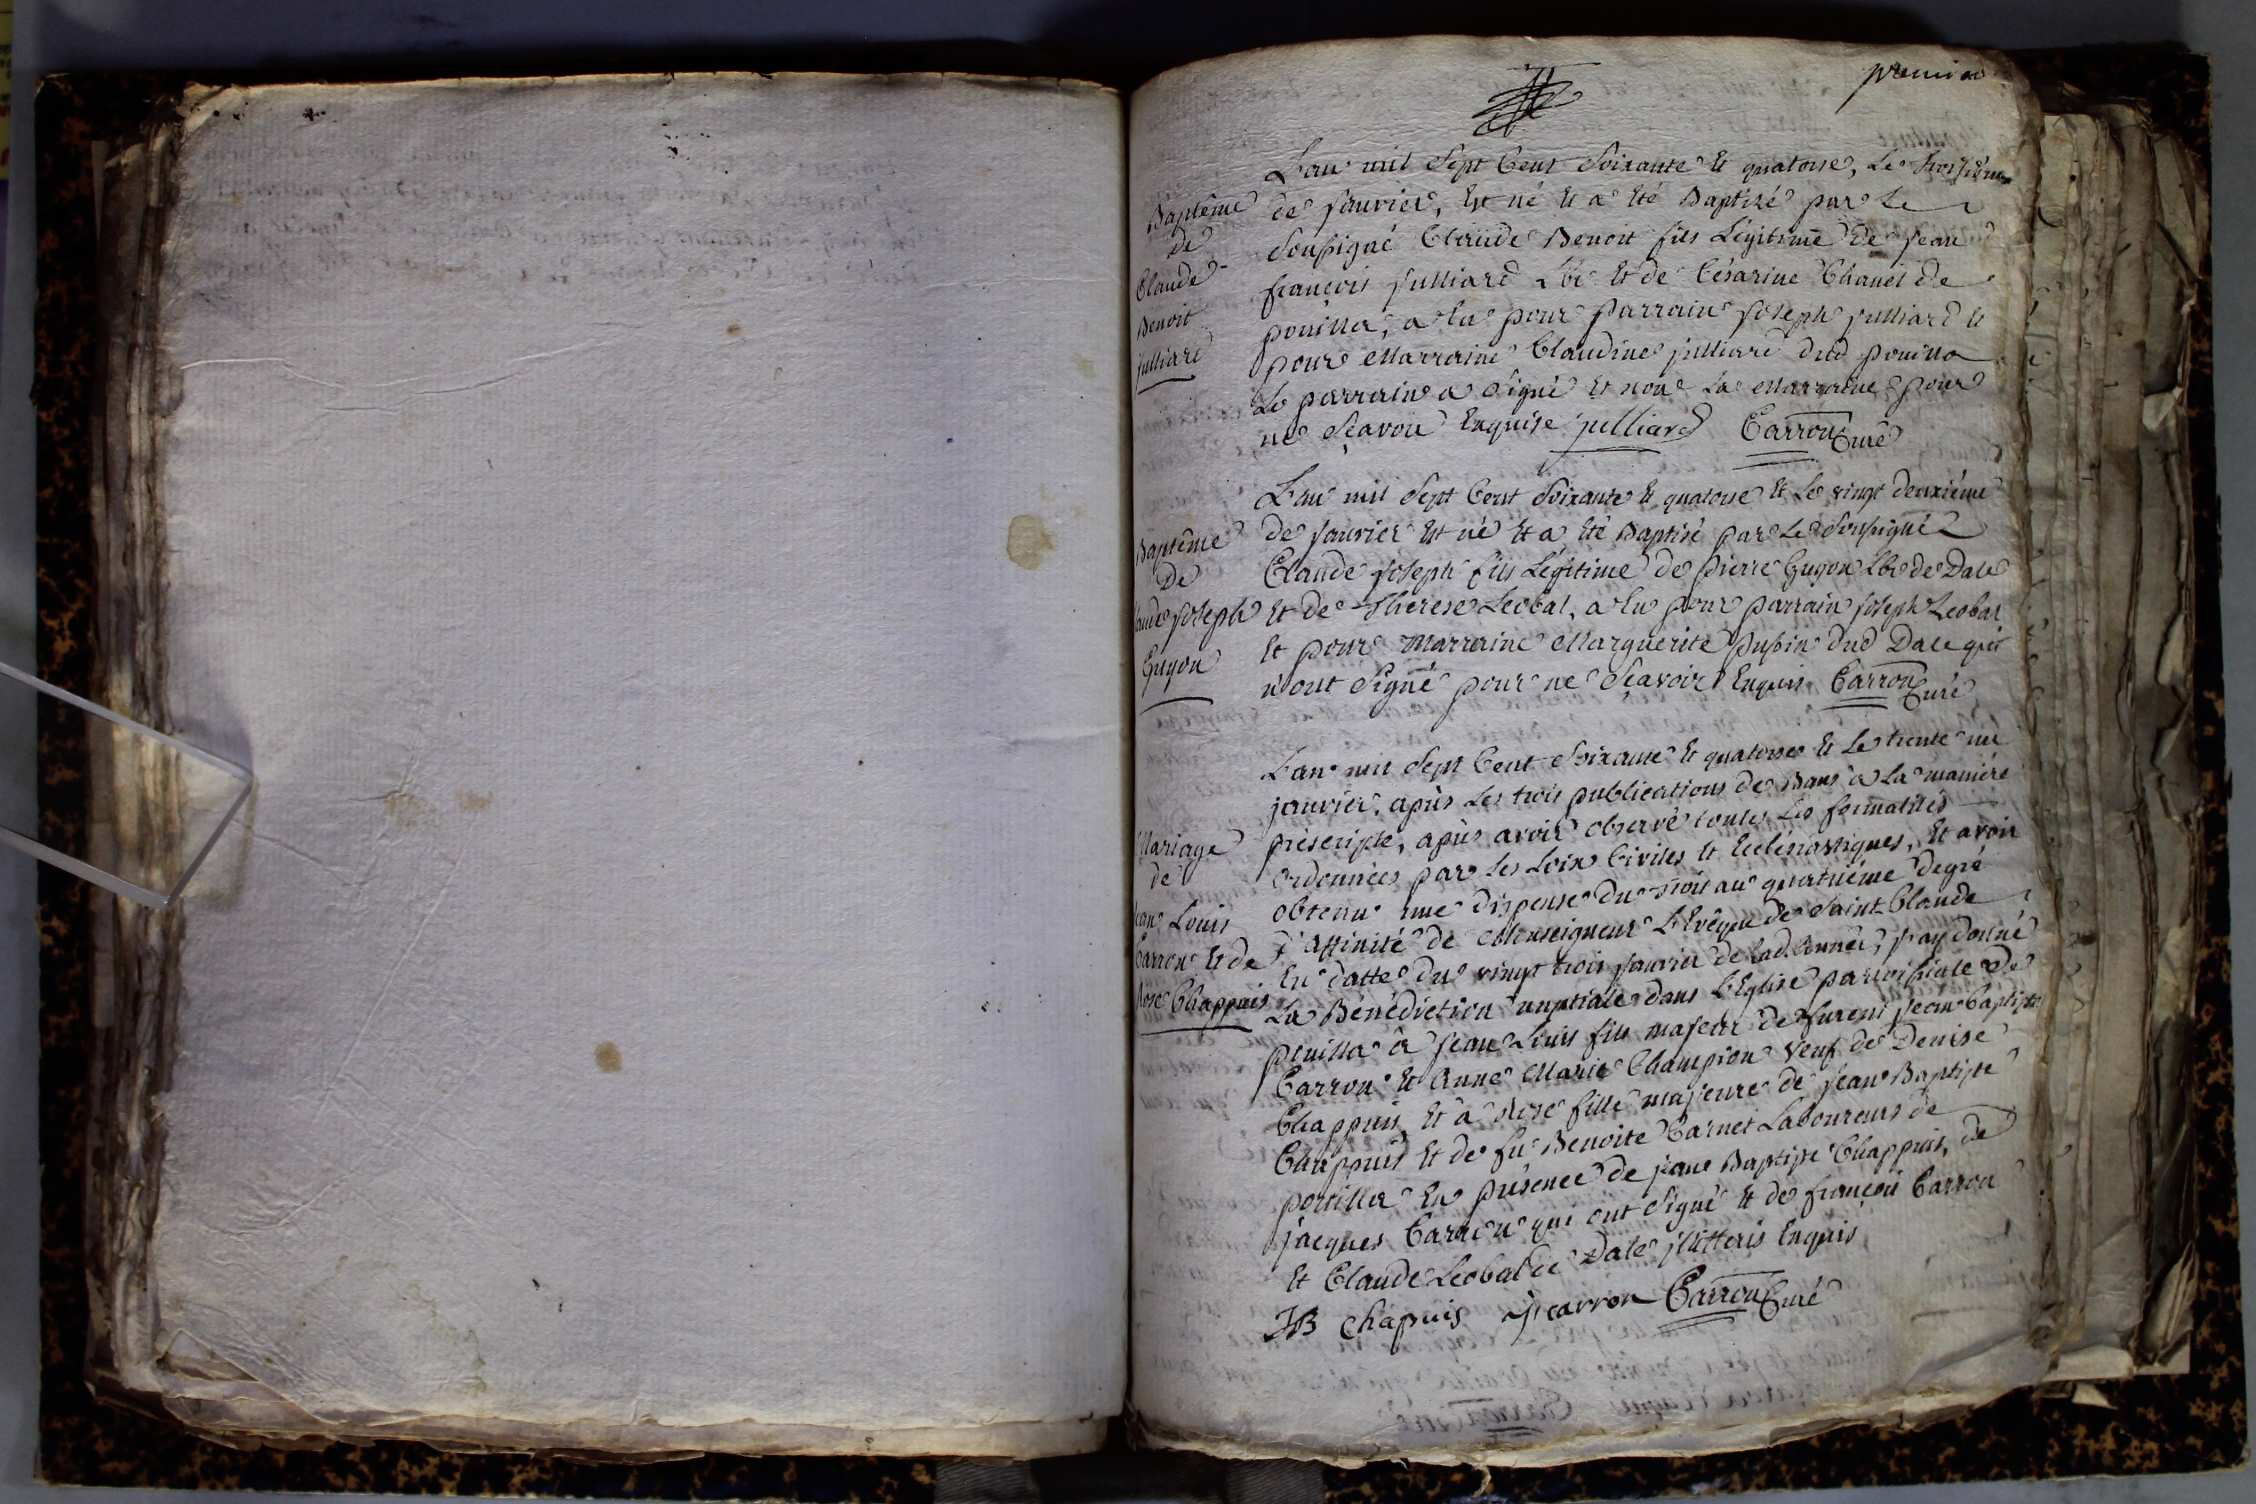 premier
L'an mil Sept Cent Soixante et quatorse, Le troisième
de janvier, Est né et a Eté Baptizé par Le
Soussigné Claude Benoit fils Légitime de jean
françois julliard Lbr Et de Césarine Chanel de
pouilla, a Eu pour parrain joseph julliard et
pour Marraine Claudine julliard dud pouilla
Le parrain a Signé et non La Marraine pour
ne Sçavoir Enquise julliard Carron Curé
Baptême
de
Claude
Benoit
julliard
L'an mil Sept Cent Soixante et quatorse Et Le vingt deuxième
de janvier Est né Et a Eté Baptisé par Le Soussigné
Claude joseph fils Légitime de pierre Guyon Lbr de Dale
Et de Therese Leobal, a Eu pour parrain joseph Leobal
Et pour Marraine Marguerite dud Dale qui
n'ont Signé pour ne Sçavoir Enquis Carron Curé
Baptême
De
joseph
Guyon
L'an mil Sept Cent Soixante et quatorse Et Le trente un
janvier, après Les trois publications de Bans à La manière
préscripte, après avoir observé toutes Les formalités
ordonnées par Les Loix Civiles Et Ecclésiastiques, Et avoir
obtenu une dispense du trois au quatrième degré
d'Affinité de Monseigneur L'Evêque de Saint Claude
En datte du vingt trois janvier de Lad. Année, j'ay donné
La Bénédiction nuptiale dans L'Eglise paroissiale de
pouilla à jean Louis fils majeur de furent jean Baptiste
Carron Et Anne Marie Champion veuf de Denise
Chappuis Et à Rose fille majeure de jean Baptiste
Chappuis Et de fu Benoite Carnet Laboureurs de
pouilla En présence de jean Baptiste Chappuis, de
jacques Carron qui ont Signé Et de françois Carron
Et Claude Leobal de Dale jllitteris Enquis
JB Chapuis j carron Carron Curé
Mariage
de
jean Louis
Carron Et de
Rose Chappuis